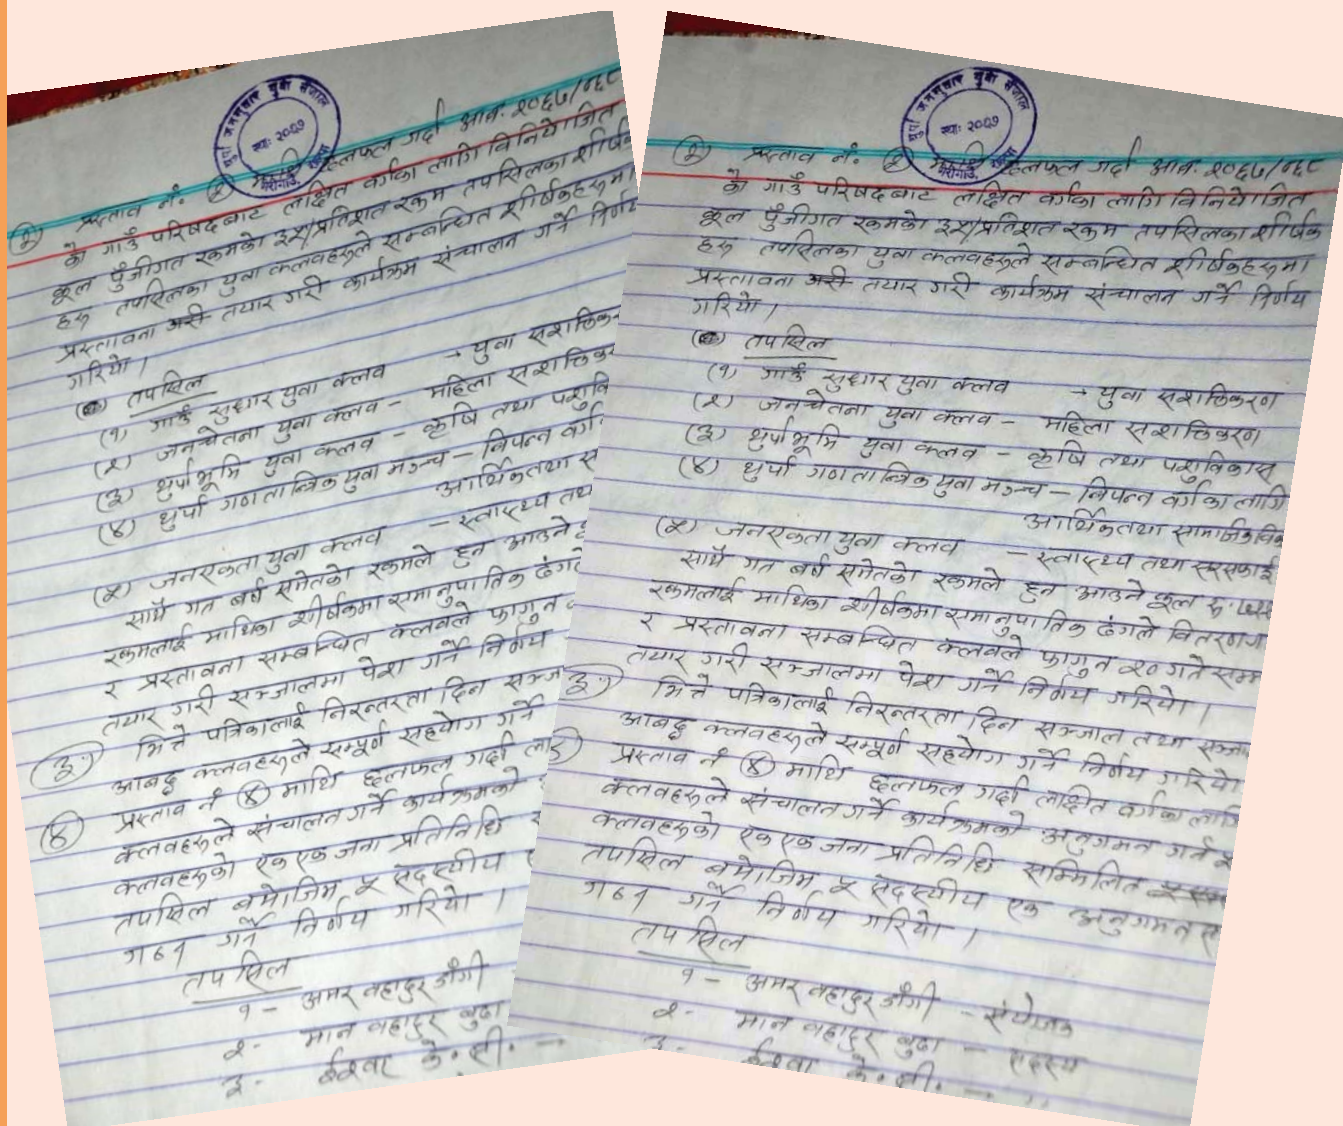 थुर्पा जनमुखी युवा संजाल
स्था: २०६७
(२) प्रस्ताव नं. (२) माथि छलफल गर्दा आ.व. २०६७/०६८
को गाउँ परिषदबाट लक्षित वर्गका लागि विनियोजित
कूल पुँजीगत रकमको ३५/प्रतिशत रकम तपसिलका शीर्षक
हरु तपसिलका युवा क्लवहरुले सम्बन्धित शीर्षकहरुमा
प्रस्तावना तयार गरी कार्यक्रम संचालन गर्ने निर्णय
गरियो ।
तपसिल
(१) गाउँ सुधार युवा क्लव → युवा सशक्तिकर
(२) जनचेतना युवा क्लव - महिला सशक्तिकर
(३) थुर्पाभूमि युवा क्लव - कृषि तथा पशुवि
(४) थुर्पा गणतान्त्रिक युवा मञ्च - विपन्न वर्ग
आर्थिक तथा स
(५) जनएकता युवा क्लव - स्वास्थ्य तथ
साथै गत बर्ष समेतको रकमले हुन आउने
रकमलाई माथिका शीर्षकमा समानुपातिक ढंगले
र प्रस्तावना सम्बन्धित क्लवले फागुन
तयार गरी सञ्जालमा पेश गर्ने निर्णय
(३) भित्ते पत्रिकालाई निरन्तरता दिन सञ्ज
आबद्ध क्लवहरुले सम्पूर्ण सहयोग गर्ने
(४) प्रस्ताव नं (४) माथि छलफल गर्दा ल
क्लवहरुले संचालन गर्ने कार्यक्रमको
क्लवहरुको एक एक जना प्रतिनिधि
तपसिल बमोजिम ५ सदस्यीय
गठन गर्ने निर्णय गरियो ।
तपसिल
१- अमर वहादुर डाँगी
२- मान वहादुर बुढा
३- ईश्वरा के.सी. -
थुर्पा जनमुखी युवा संजाल
स्था: २०६७
(२) प्रस्ताव नं. (२) माथि छलफल गर्दा आ.व. २०६७/०६८
को गाउँ परिषदबाट लक्षित वर्गका लागि विनियोजित
कूल पुँजीगत रकमको ३५/प्रतिशत रकम तपसिलका शीर्षक
हरु तपसिलका युवा क्लवहरुले सम्बन्धित शीर्षकहरुमा
प्रस्तावना तयार गरी कार्यक्रम संचालन गर्ने निर्णय
गरियो ।
तपसिल
(१) गाउँ सुधार युवा क्लव → युवा सशक्तिकरण
(२) जनचेतना युवा क्लव - महिला सशक्तिकरण
(३) थुर्पाभूमि युवा क्लव - कृषि तथा पशुविकास
(४) थुर्पा गणतान्त्रिक युवा मञ्च - विपन्न वर्गका लागि
आर्थिक तथा सामाजिक विक
(५) जनएकता युवा क्लव - स्वास्थ्य तथा सरसफाई
साथै गत बर्ष समेतको रकमले हुन आउने कूल रु.
रकमलाई माथिका शीर्षकमा समानुपातिक ढंगले वितरण ग
र प्रस्तावना सम्बन्धित क्लवले फागुन २० गते सम्म
तयार गरी सञ्जालमा पेश गर्ने निर्णय गरियो ।
(३) भित्ते पत्रिकालाई निरन्तरता दिन सञ्जाल तथा सञ्ज
आबद्ध क्लवहरुले सम्पूर्ण सहयोग गर्ने निर्णय गरियो
प्रस्ताव नं (४) माथि छलफल गर्दा लक्षित वर्गका लागि
क्लवहरुले संचालन गर्ने कार्यक्रमको अनुगमन गर्न
क्लवहरुको एक एक जना प्रतिनिधि सम्मिलित
तपसिल बमोजिम ५ सदस्यीय एक अनुगमन
गठन गर्ने निर्णय गरियो ।
तपसिल
१- अमर वहादुर डाँगी - संयोजक
२- मान वहादुर बुढा - सदस्य
३- ईश्वरा के.सी. - ,,